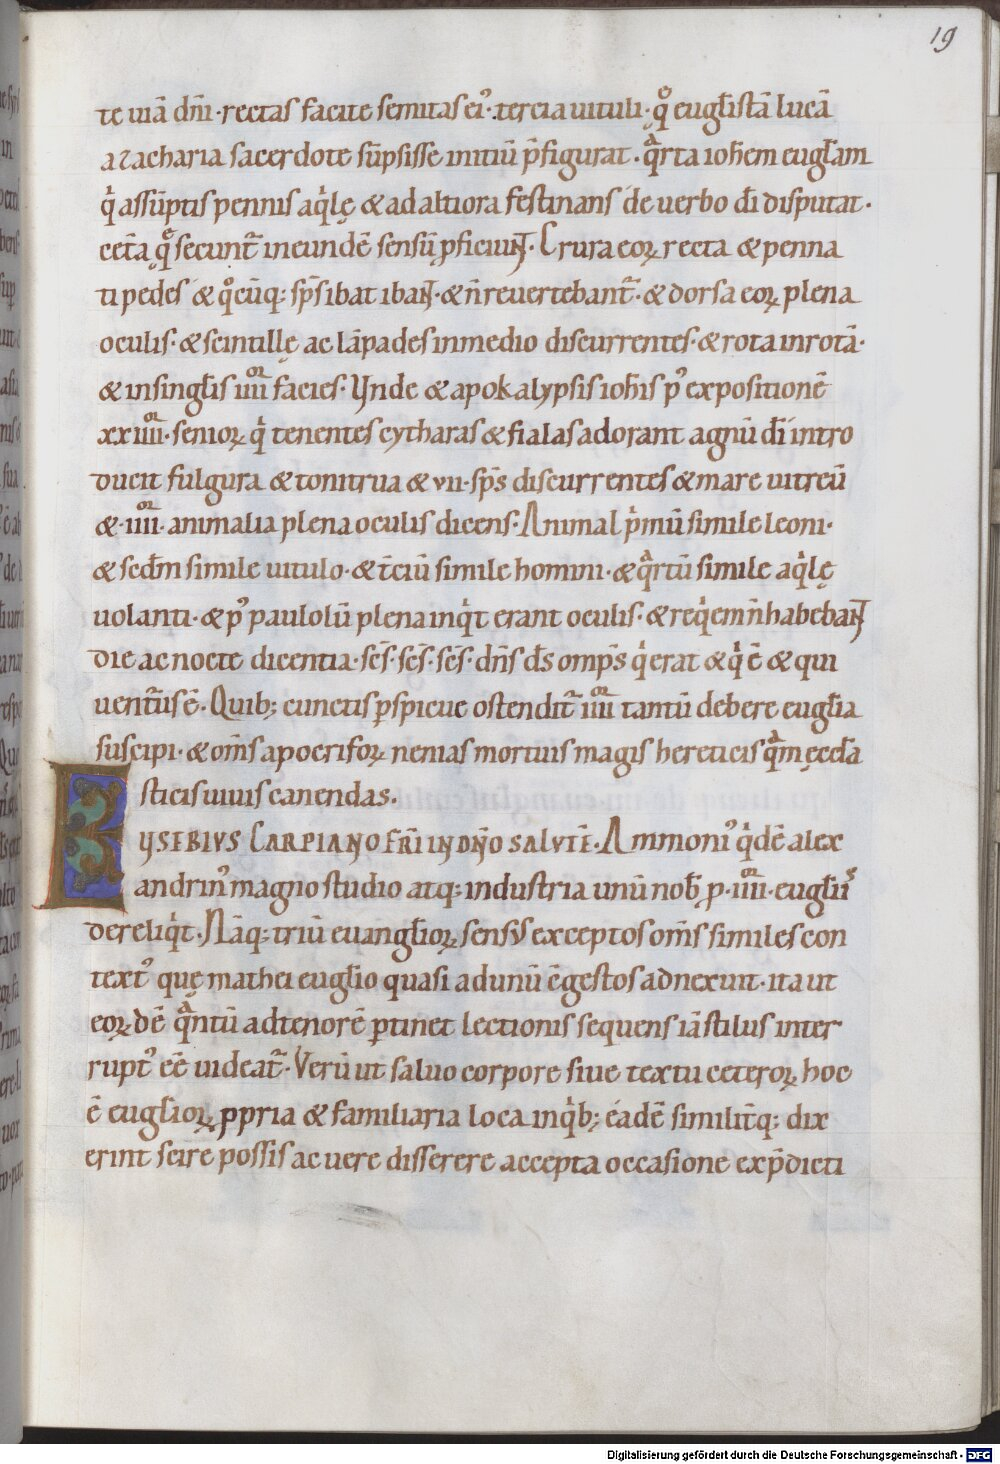 19
te uiā dn̄i · rectas facite semitas ei᾿ · tercia uituli · qͦ eugl̄istā lucā
a zacharia sacerdote sūpsisse initiū p̄figurat · qͣrta ioh̄em eugl̄am
qͥ assūptis pennis aqͥlę & ad altiora festinans de uerbo dī disputat ·
cet̄a quę̄ secunt᷑ in eundē sensū ꝓficiunt · Crura eoꝝ recta & penna
ti pedes & qͦcūq; sp̄s ibat ibant · & n̄ reuertebant᷑ · & dorsa eoꝝ plena
oculis · & scintillę ac lāpades in medio discurrentes · & rota in rotā ·
& in singl̄is iiiiᵒʳ facies · Vnde & apokalypsis ioh̄is p᾿ expositionē
xxiiiiᵒʳ · senioꝝ qͥ tenentes cytharas & fialas adorant agnū dī intro
ducit fulgura & tonitrua & vii · sp̄s discurrentes & mare uitreū
& · iiiiᵒʳ · animalia plena oculis dicens · Animal pͥmū simile leoni ·
& sed̄m simile uitulo · & t̄ciū simile homini · & qͣrtū simile aqͥlę
uolanti · & p᾿ paulolū plena inqͥt erant oculis · & reqͥem n̄ habebant
die ac nocte dicentia · sc̄s · sc̄s · sc̄s · dn̄s d̄s omp̄s qͥ erat & qͥ ē & qui
uent̄us ē · Quib; cunctis ꝑspicue ostendit᷑ iiiiᵒʳ tantū debere eugl̄ia
suscipi · & om̄s apocrifoꝝ nenias mortuis magis hereticis qͣm ęccl̄a
sticis uiuis canendas .
EVSEBIVS CARPIANO FR̄I IN DN̄O SALVTĒ · Ammoni᾿ qͥdē alex
andrin᾿ magno studio atq; industria unū nob̄ ꝓ · iiiiᵒʳ · eugl̄iis
dereliqͥt · Nāq; triū euangl̄ioꝝ sensus exceptos om̄s similes con
text᾿ quę mathei euglīo quasi ad unū c̄gestos adnexuit · ita ut
eoꝝdē qͣntū ad tenorē ꝑtinet lectionis sequens iā stilus inter
rupt᾿ eē uideat᷑ · Verū ut saluo corpore siue textu ceteroꝝ hoc
ē eugl̄ioꝝ ꝓpria & familiaria loca in qͥb; eadē similit̄q; dix
erint scire possis ac uere disserere accepta occasione ex p̄dicti
Digitalisierung gefördert durch die Deutsche Forschungsgemeinschaft - DFG